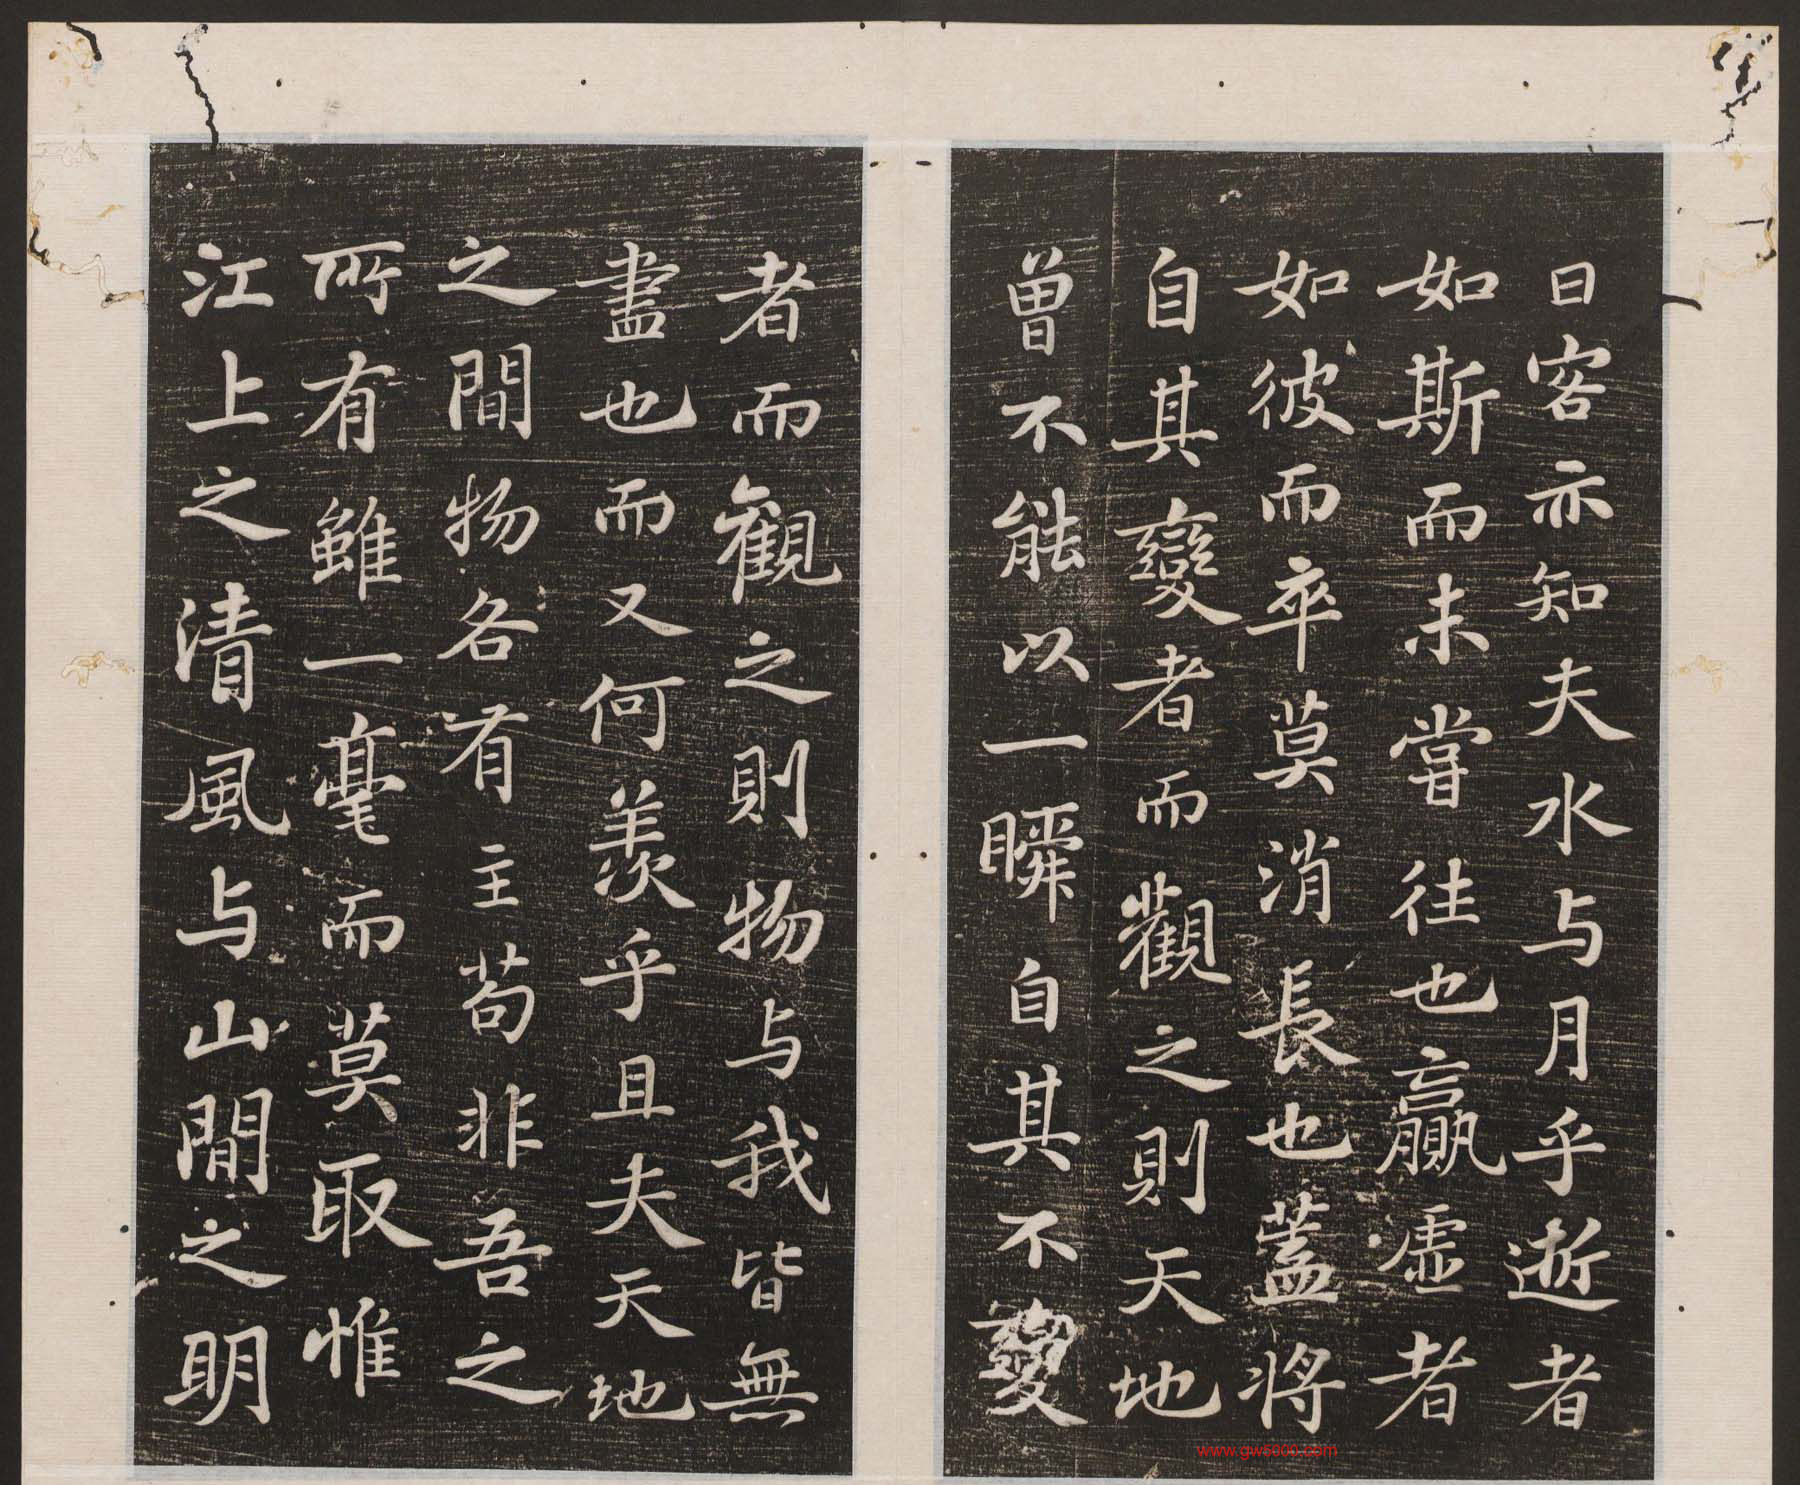 曰客亦知夫水与月乎逝者
如斯而未嘗往也贏虛者
如彼而卒莫消長也蓋將
自其變者而觀之則天地
曾不能以一瞬自其不變
者而觀之則物与我皆無
盡也而又何羨乎且夫天地
之間物各有主苟非吾之
所有雖一毫而莫取惟
江上之清風与山間之明
www.gw5000.com